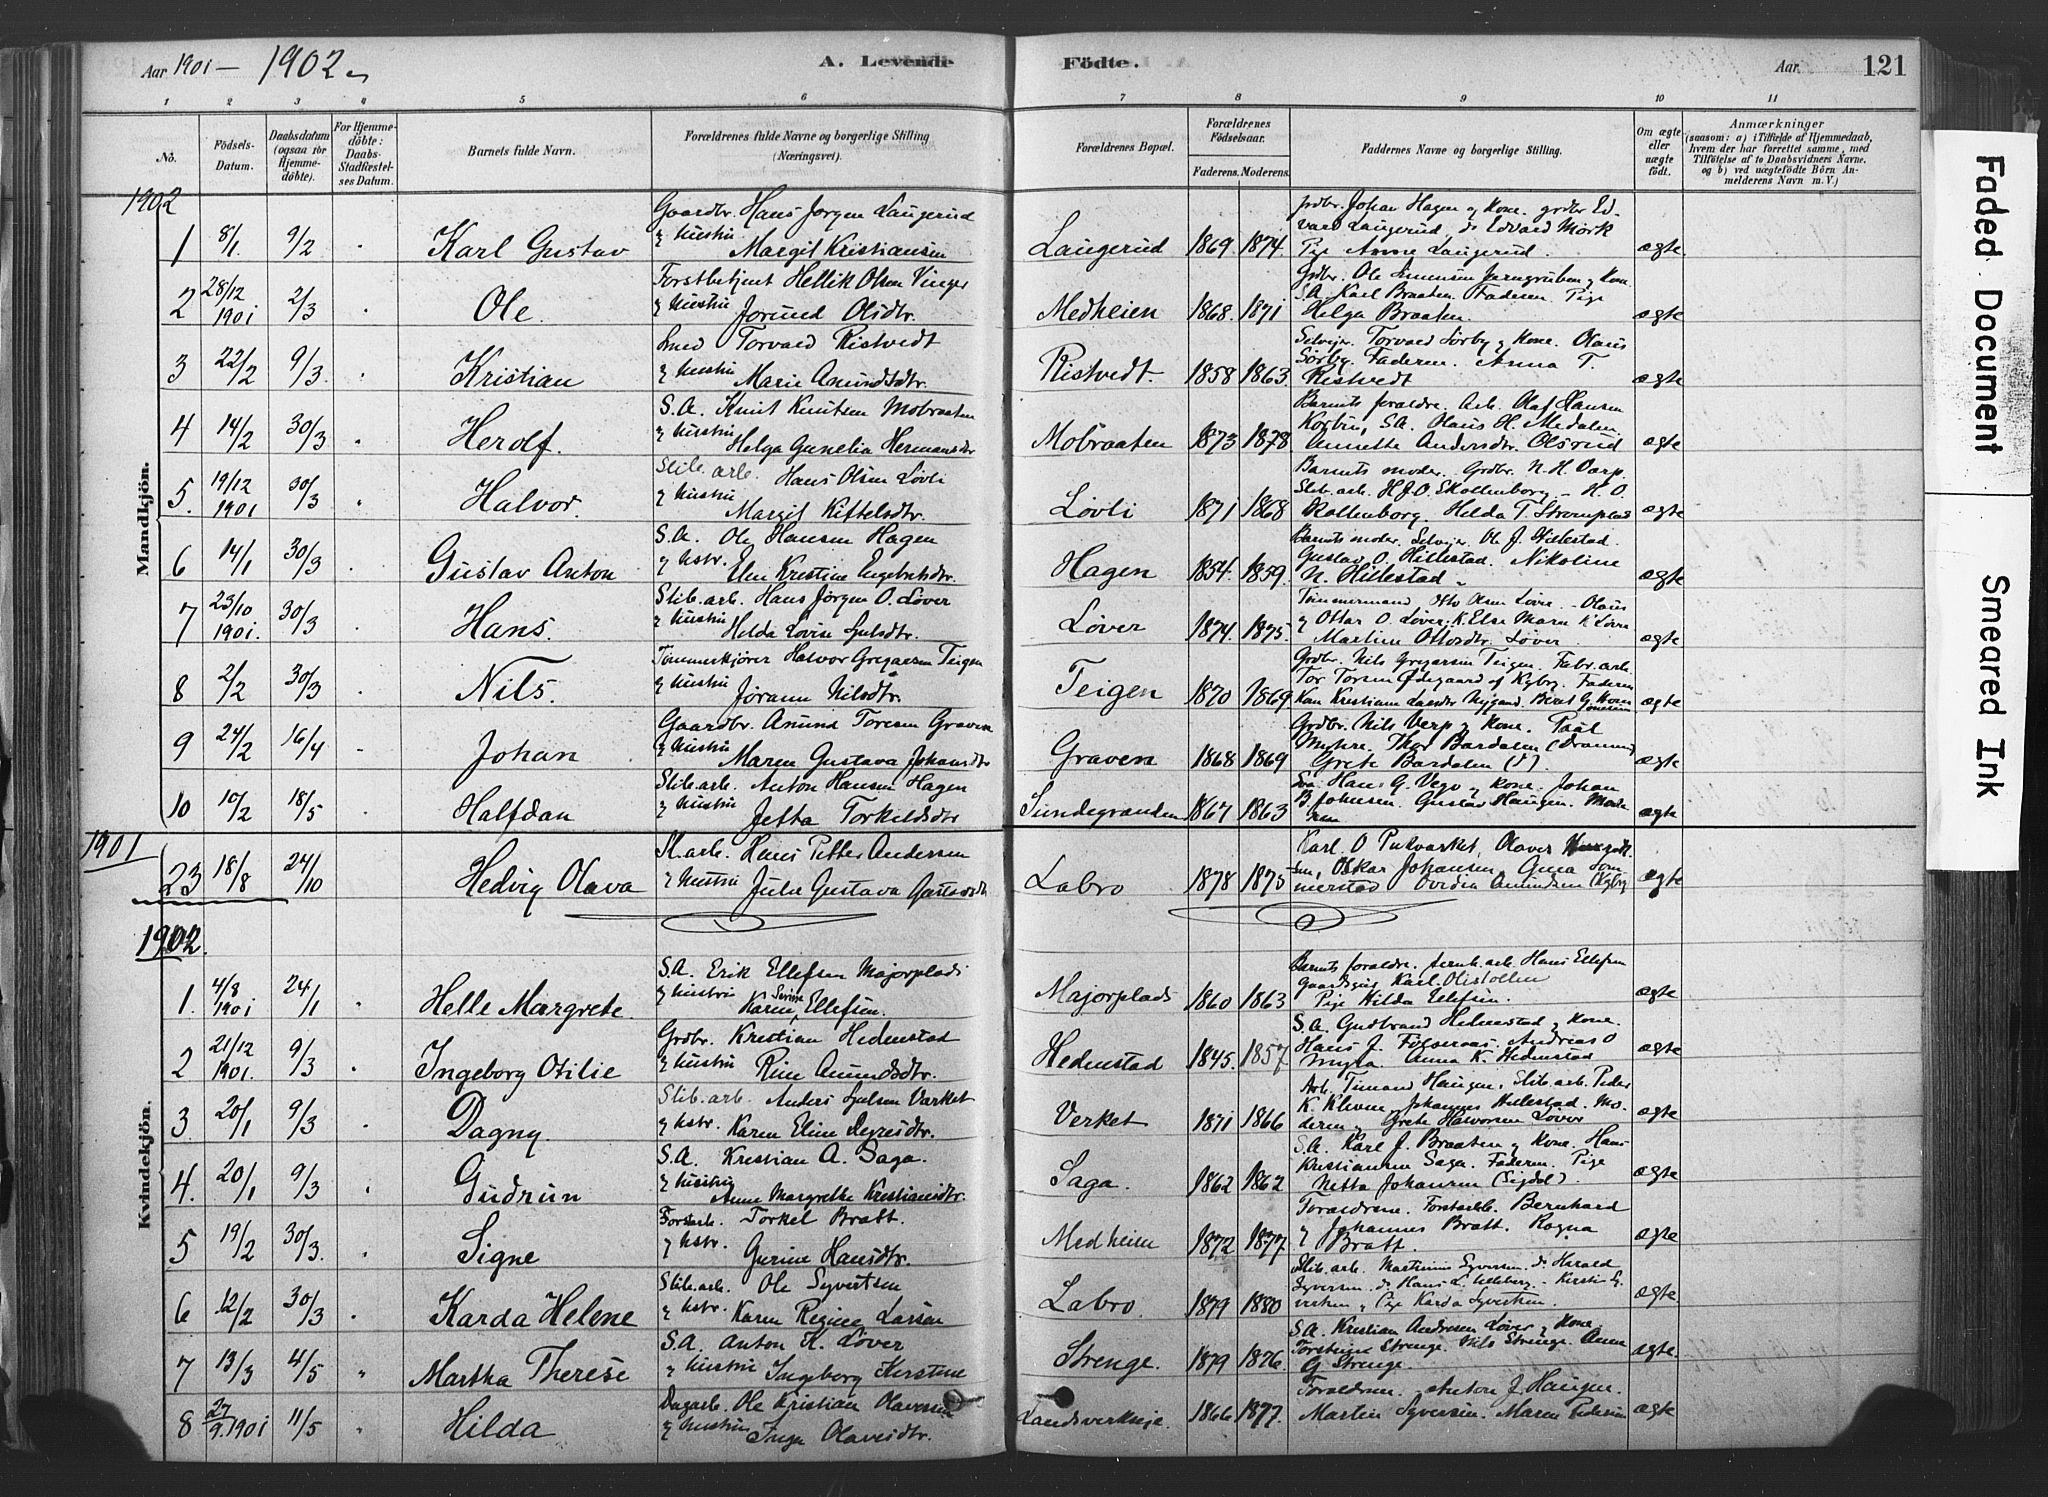 Aar 1901 – 1902
A. Levende Födte.
Aar. 121
1 2 3 4 5 6 7 8 9 10 11
No.
Födsels-Datum.
Daabsdatum (ogsaa for Hjemmedöbte).
For Hjemmedöbte: Daabs-Stadfæstelses Datum.
Barnets fulde Navn.
Forældrenes fulde Navne og borgerlige Stilling (Næringsvei).
Forældrenes Bopæl.
Forældrenes Födselsaar.
Faderens. Moderens.
Faddernes Navne og borgerlige Stilling.
Om ægte eller uægte födt.
Anmærkninger
(saasom: a) i Tilfælde af Hjemmedaab, hvem der har forrettet samme, med Tilföielse af to Daabsvidners Navne. og b) ved uægtefödte Börn Anmelderens Navn m. V.)
Faded Document Smeared Ink
Mandkjön.
1902
1 8/1 9/2 Karl Gustav Gaardbr. Hans Jørgen Laugerud
& Hustru Margit Kristiansen Laugerud 1869 1874. ægte
grdbr. Johan Hagen & Kone. grdbr Ed-
vard Laugerud, do Edvard Mørk
Pige Anne Laugerud.
2 28/12 1901 2/3 Ole. Forstbetjent Hellik Olsen Vinger
& Hustru Jorund Olsdtr. Medheien 1868. 1871 ægte
Grdbr. Ole Simensen Jerngruben & Kone
S.A. Karl Braaten. Faderen. Pige
Helga Braaten.
3 22/2 9/3. Kristian Torvald Ristvedt
& Hustru Marie Amundsdtr. Ristvedt. 1858 1863. ægte
Selvejer. Torvald Sørby & Kone. Olaus
Sørby. Faderen. Anna T.
Ristvedt
4 14/2 30/3 Herolf. S.A. Knut Knutsen Mobraaten
& Hustru Helga Gunelia Hermansdtr Mobraaten 1873 1878 ægte
Barnets foraldre. Arb. Olaf Hansen
S.A. Olaus H. Medalen.
Annette Andersdtr. Olsrud
5. 19/12 1901 30/3 Halvor. Slib. arb. Hans Olsen Løvli
& Hustru Margit Kittelsdtr. Løvli 1871 1868 ægte
Barnets moder. Grdbr. N.H. Darp.
Slib. arb. H.J.O. Skollenborg – H. O.
Skollenborg. Helda T.
6 14/1 30/3 Gustav Anton S.A. Ole Hansen Hagen
& Hstr. Elen Kristine Engebretsdtr. Hagen 1854. 1859. ægte
Barnets moder. Selvejer. Ole J. Hillestad.
Gustav O. Hillestad. Nikoline
N. Hillestad.
7 23/10 1901. 30/3 Hans. Slib. arb. Hans Jørgen O. Løver
& Hustru Helda Lovise Løver 1874. 1875. ægte
Tømmermand Otto Olsen Løver. Olaus
& Ottar O. Løver.
Martine Ottosdtr. Løver
8 2/2 30/3 Nils. Tømmerkjører Halvor Gregarsen Teigen
& Hustru Jørann Nilsdtr. Teigen 1870 1869 ægte
Grdbr. Nils Gregarsen Teigen. Fabr. arb.
Tor Torsen Ødegaard af Kgbrg. Faderen
9 24/2 16/4 Johan Gaardbr. Amund Toresen Graven
& Hustru Maren Gustava Johansdtr Graven 1868 1869 ægte
Grdbr. Nils Verp & Kone. Paal
Myhre. Thor Bardalen (Drammen)
Grete Bardalen (do).
10 10/2 18/5 Halfdan Slib. arb. Anton Hansen Hagen
& Hustru Jetta Torkildsdtr Sundegranden 1867 1863 ægte
Hans G. Vego & kone. Johan
B. Johnsen. Gustav Haugen. Mode-
ren
1901
23 18/8 24/10 Hedvig Olava Sl. arb. Hans Petter Andersen
& Hustru Julie Gustava Labro 1878 1875 ægte
Karl. O
Oskar Johansen Guna Som-
merstad Ovidia Amundsen (Kgbrg
Kvindekjön.
1902.
1. 4/8 1901 24/1 Helle Margrete. S.A. Erik Ellefsen Majorplads
& Hustru Karen Serine Ellefsen. Majorplads 1860 1863 ægte
Barnets foraldre. Hans Ellefsen
Karl Olistollen
Pige Hilda Ellefsen.
2 21/12 1901. 9/3 Ingeborg Otilie Grdbr. Kristian Hedenstad
& Hustru Rine Amundsdtr. Hedenstad 1845. 1857 ægte
S.A. Gudbrand Hedenstad & Kone.
Hans J. Andreas O
Myra Anna K. Hedenstad
3. 20/1 9/3 Dagny. Slib. arb. Anders Verket
& Hstr. Karen Eline Verket 1871 1866 ægte
Arb. Haugen. Slib. arb. Peder
K. Kleven. Johannes Hillestad. Mo-
deren & Grete Halvorsen Løver
4. 20/1 9/3 Gudrun S.A. Kristian A. Saga.
& Hustru Anne Margrethe Kristiansdtr. Saga. 1862 1862 ægte
S.A. Karl J. Braaten & Kone. Hans
Kristiansen Saga. Faderen. Pige
Netta Johansen (Sigdal).
5 19/2 30/3. Signe Forstarb. Torkel Bratt.
& Hstr. Gurine Hansdtr. Medheien 1872 1877. ægte
Foraldrene. Forstarb. Bernhard
& Johannes Bratt. Ragna
Bratt.
6 12/2 30/3 Karda Helene Slib. arb. Ole Syvertsen
& Hstr. Karen Regine Larsen Labro. 1879 1880 ægte
Slib. arb. Martinius Syversen. do Harald
Syversen. do Hans L.
Pige Karda Syvertsen.
7 13/3 4/5 Martha Therese S.A. Anton K. Løver
& Hustru Ingeborg Kirstine Strenge. 1879 1876. ægte.
S.A. Kristian Andresen Løver & Kone.
Strenge. Nils Strenge. Anne
G Strenge.
8 27/9. 1901 11/5 Hilda Dagarb. Ole Kristian Olavesen
& Hustru Inga Olavesdtr. 1866 1877. ægte
Foraldrene. Anton J. Haugen.
Martin Syversen. Maren Pedersen